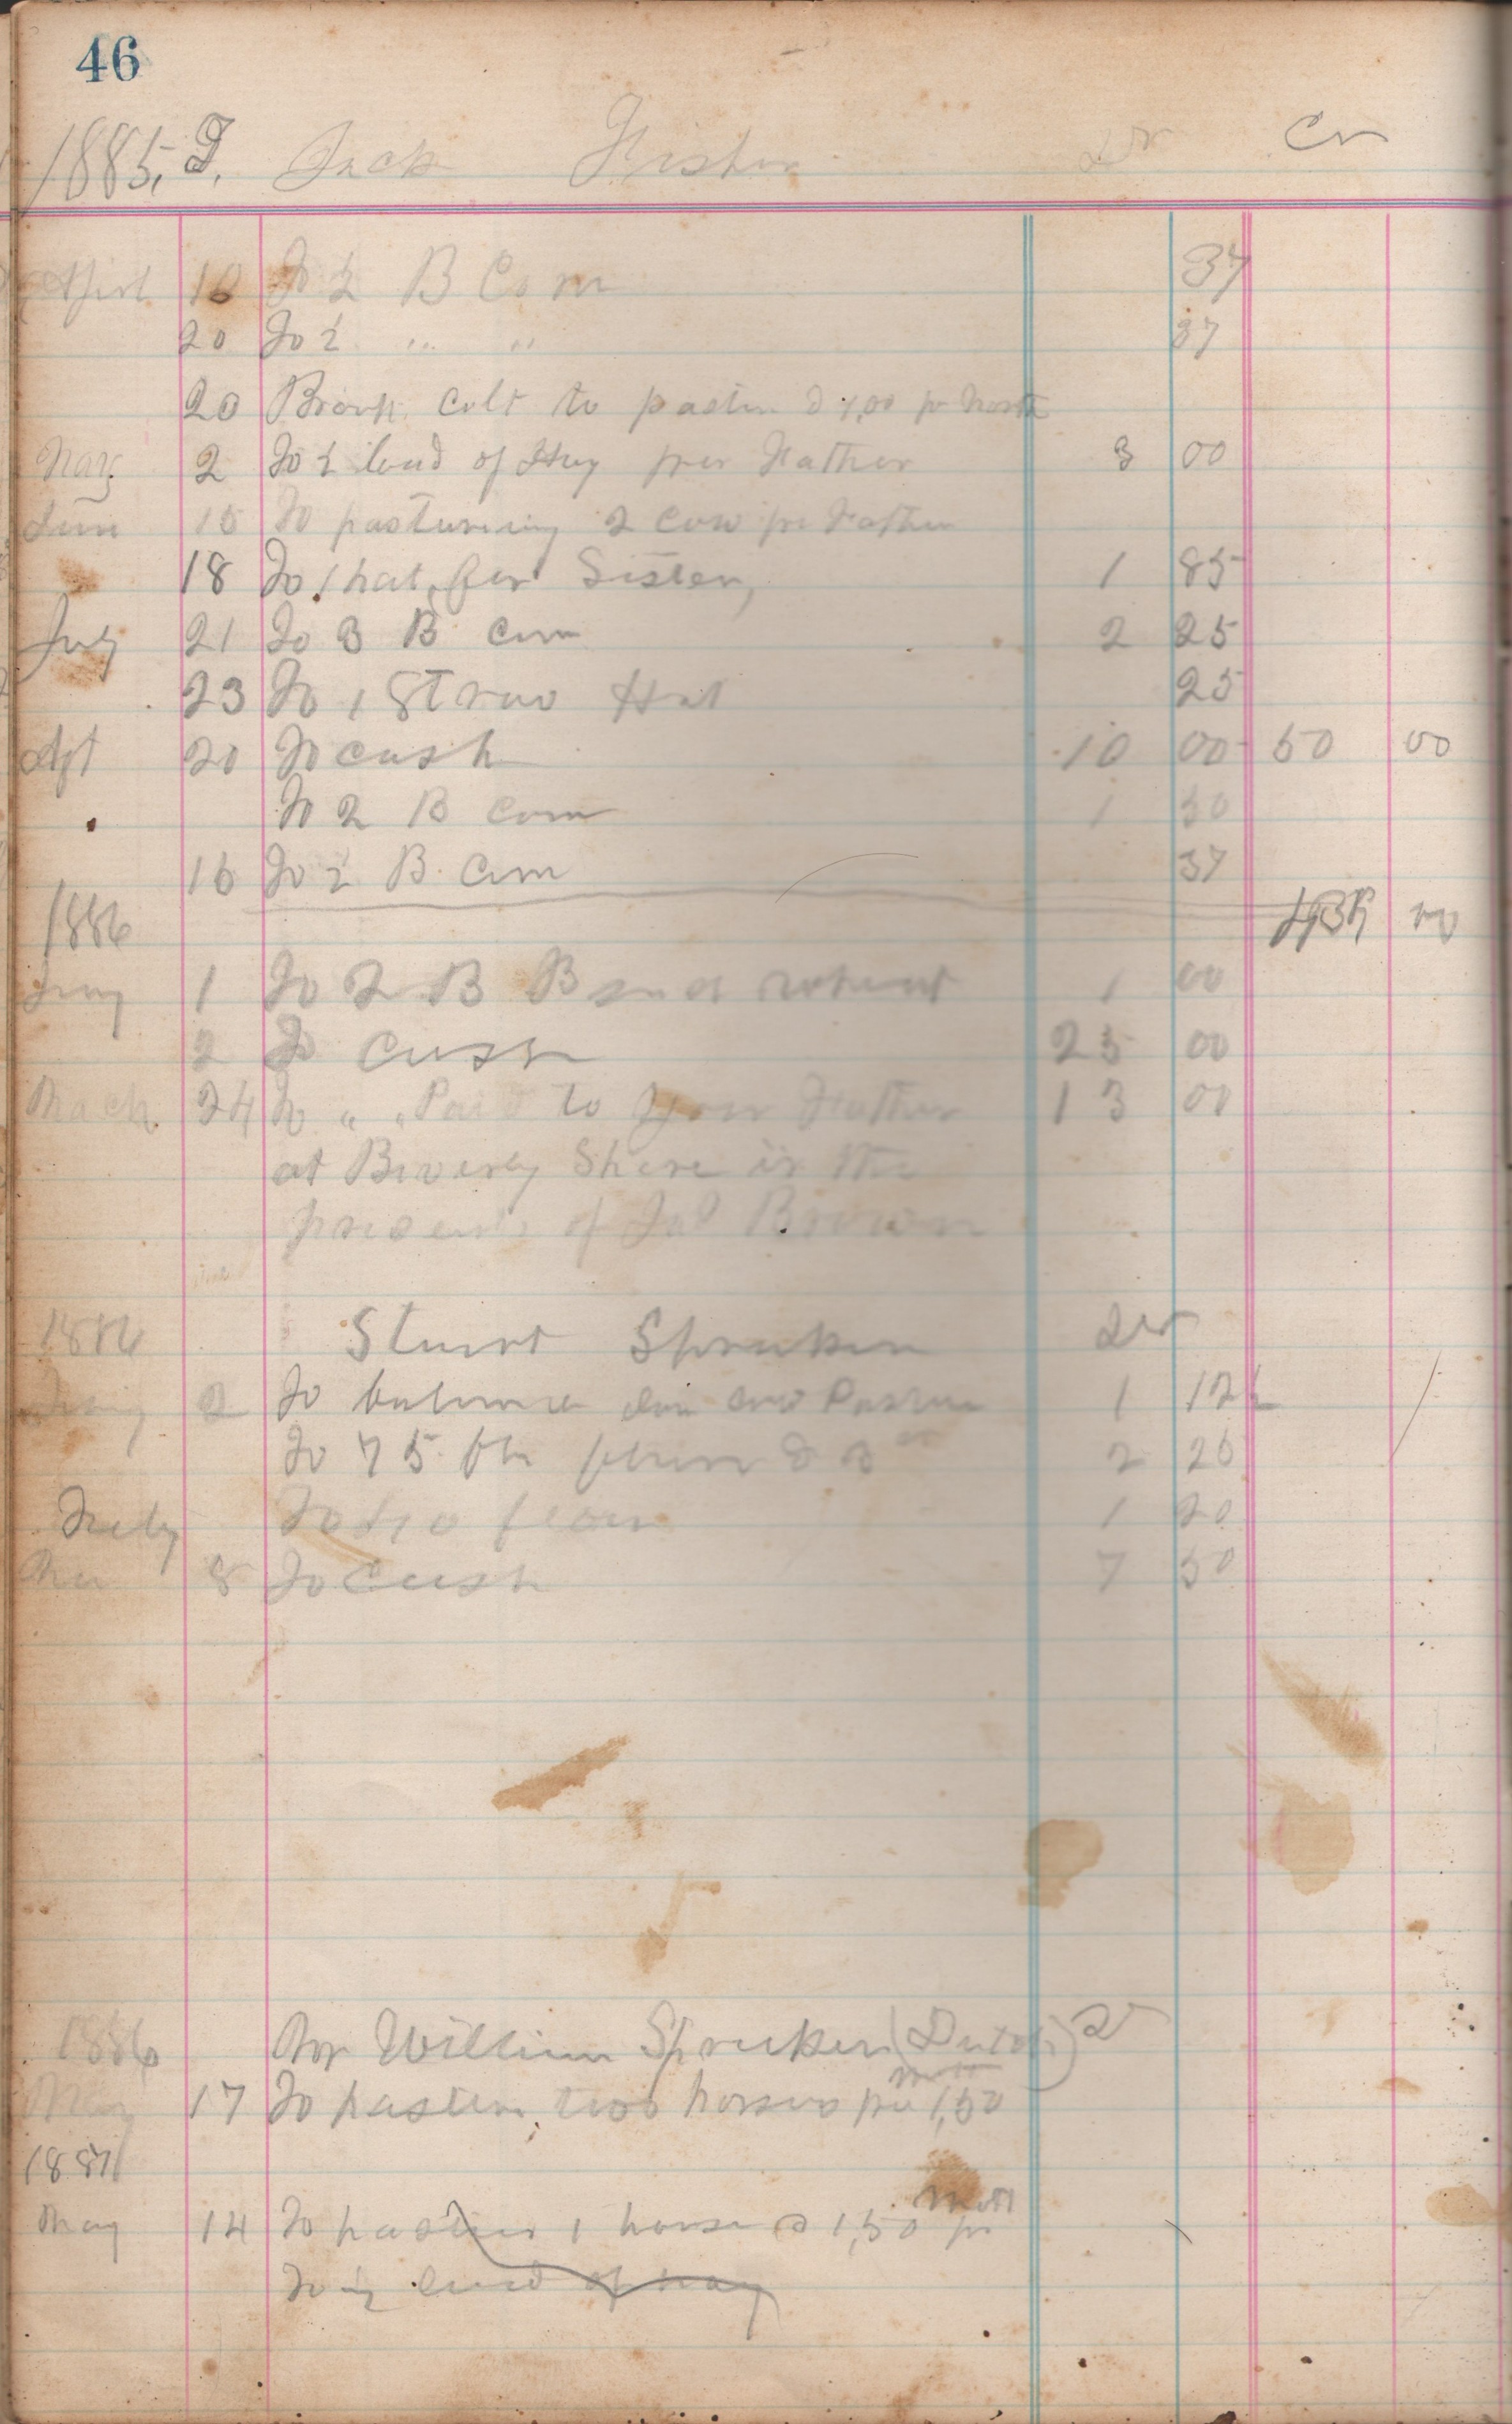 46
1885, J. Jack Fisher Dr Cr
April 10 To ½ B Corn 37
20 To ½ " " 37
20 Brown Colt to pastur @ 1,00 pr Month
May 2 To ½ load of Hay per Father 3 00
June 15 To pasturing 2 Cow pr Father
18 To 1 hat, for Sister, 1 85
July 21 To 3 B corn 2 25
23 To 1 Straw Hat 25
Spt 20 To cash 10 00 50 00
To 2 B corn 1 50
16 To ½ B. corn 37
1886
1 To 2 B 1 00
2 To Cash 25 00
March 24 To " " Paid to your Father 13 00
at Beverly Shere in the
of Brown
1886 Stuart Spruken Dr
2 To balance due 1 12½
To 75 2 25
1 20
8 To Cash 7 50
1886 Mr William Spruken (Dutch) Dr
month
May 17 To pasturn two horses pr 1,50
1887
month
May 14 To pastur 1 horse @ 1,50 pr
To ½ load of hay